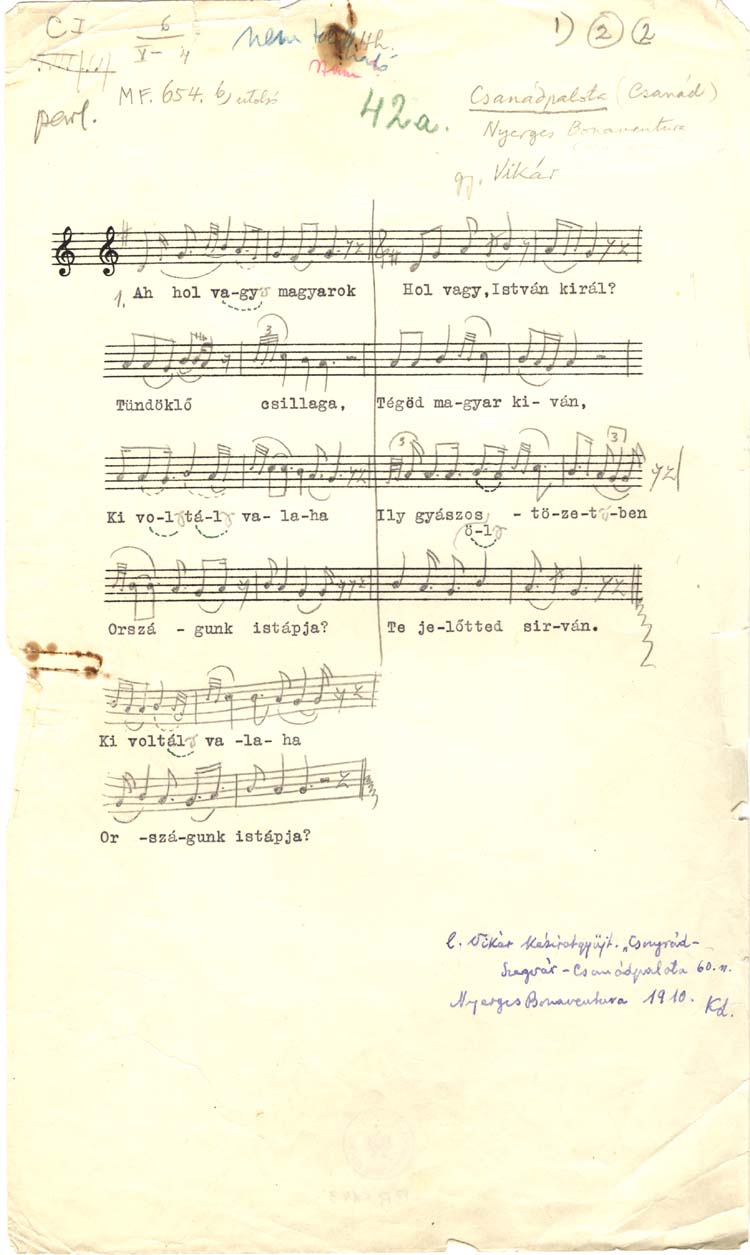 C I
6
V – 4
nem
1) 2 2
perl.
MF. 654. b) utolsó
42a.
Csanádpalota (Csanád)
Nyerges Bonaventura
gy. Vikár
1. Ah hol va-gy magyarok Hol vagy, István királ?
3
Tündöklő csillaga, Tégöd ma-gyar ki- ván,
3 3
Ki vo-l tá-l va- la-ha Ily gyászos - tö-ze-t -ben
ö-l
Orszá - gunk istápja? Te je-lőtted sirván.
Ki voltál va -la- ha
Or -szá-gunk istápja?
l. Vikár kéziratgyűjt. „Csongrád-
Szegvár - Csanádpalota 60. n.
Nyerges Bonaventura 1910. Kd.